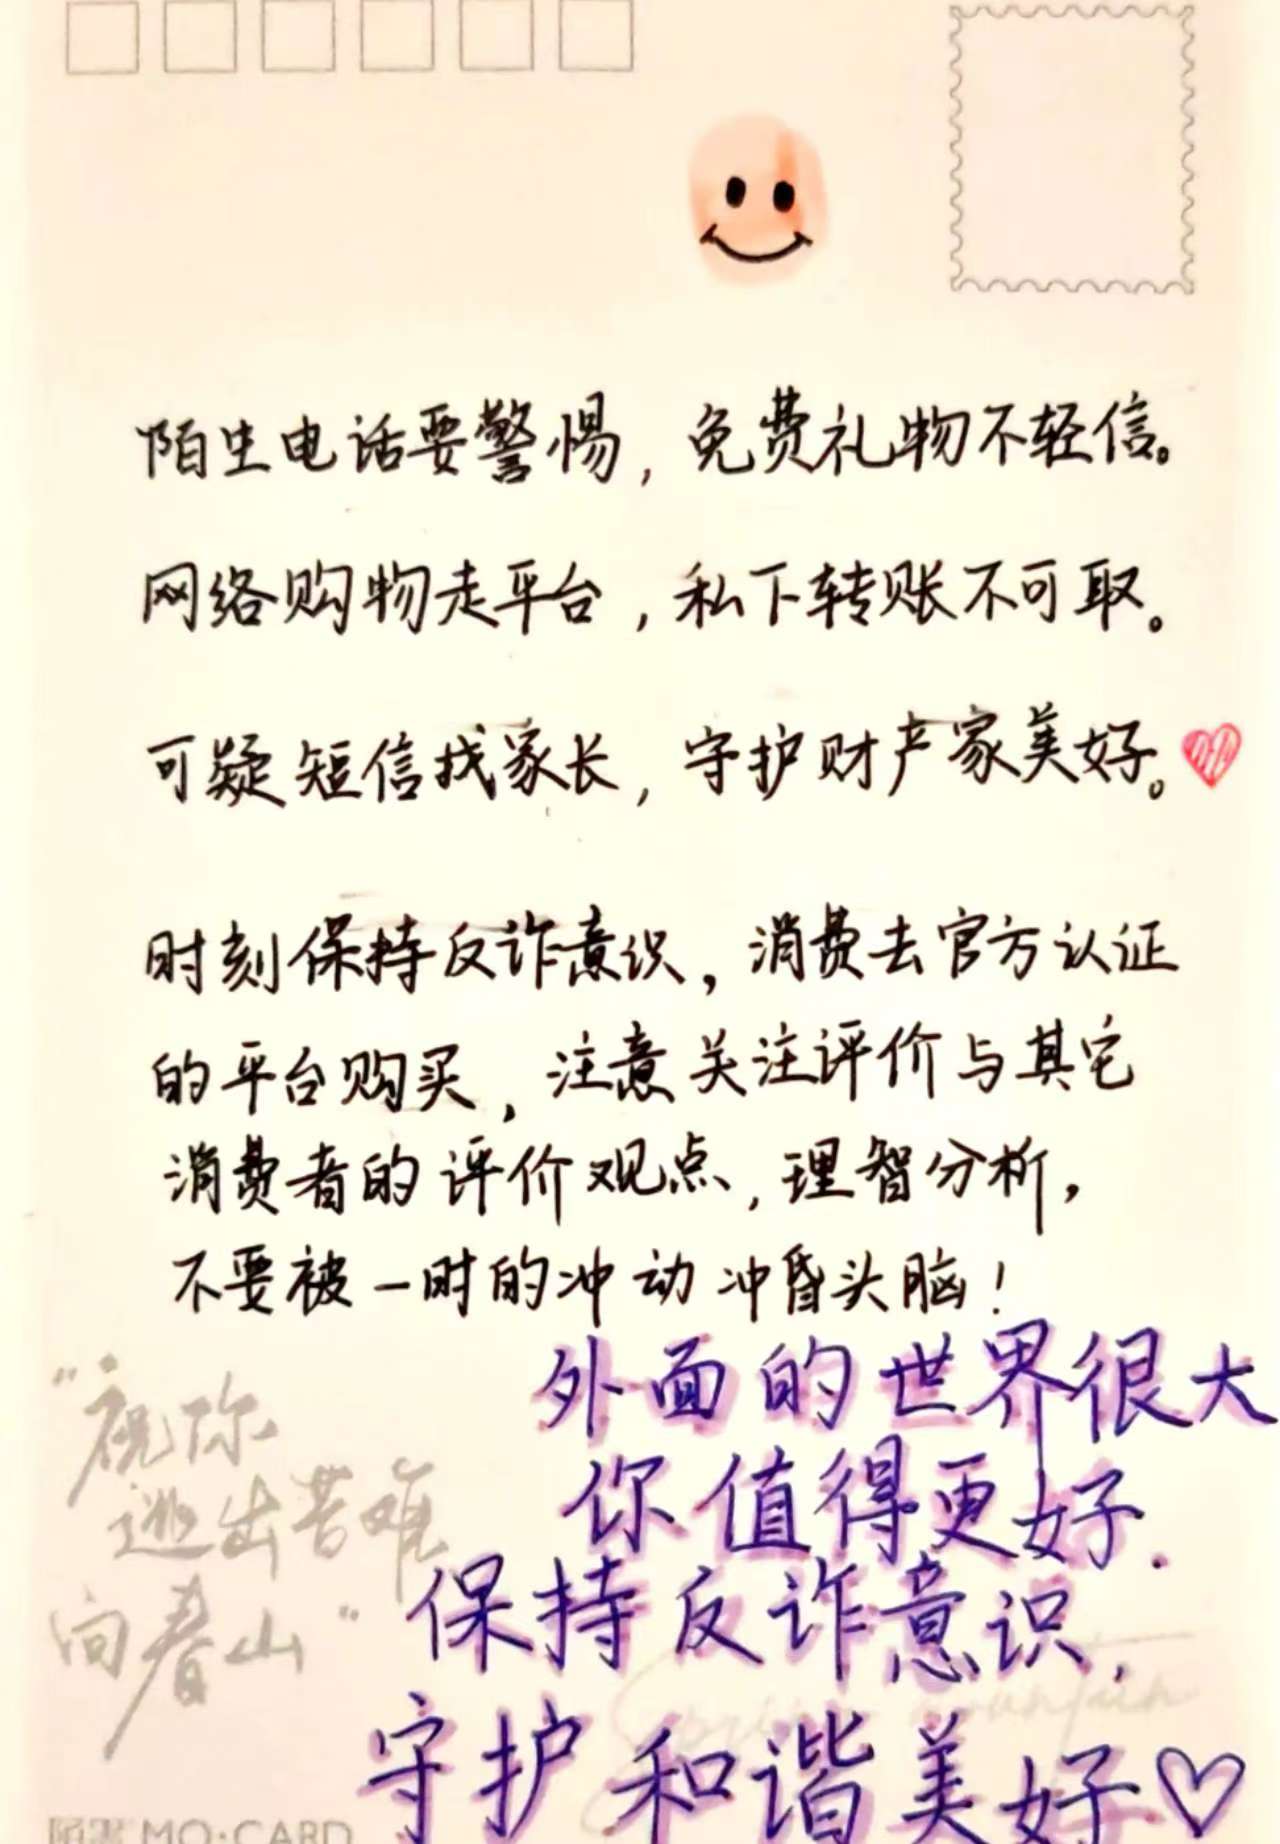 陌生电话要警惕，免费礼物不轻信。
网络购物走平台，私下转账不可取。
可疑短信找家长，守护财产家美好。
时刻保持反诈意识，消费去官方认证
的平台购买，注意关注评价与其它
消费者的评价观点，理智分析，
不要被一时的冲动冲昏头脑！
外面的世界很大
你值得更好.
保持反诈意识，
守护和谐美好
“祝你
逃出苦难
向春山”
MO·CARD